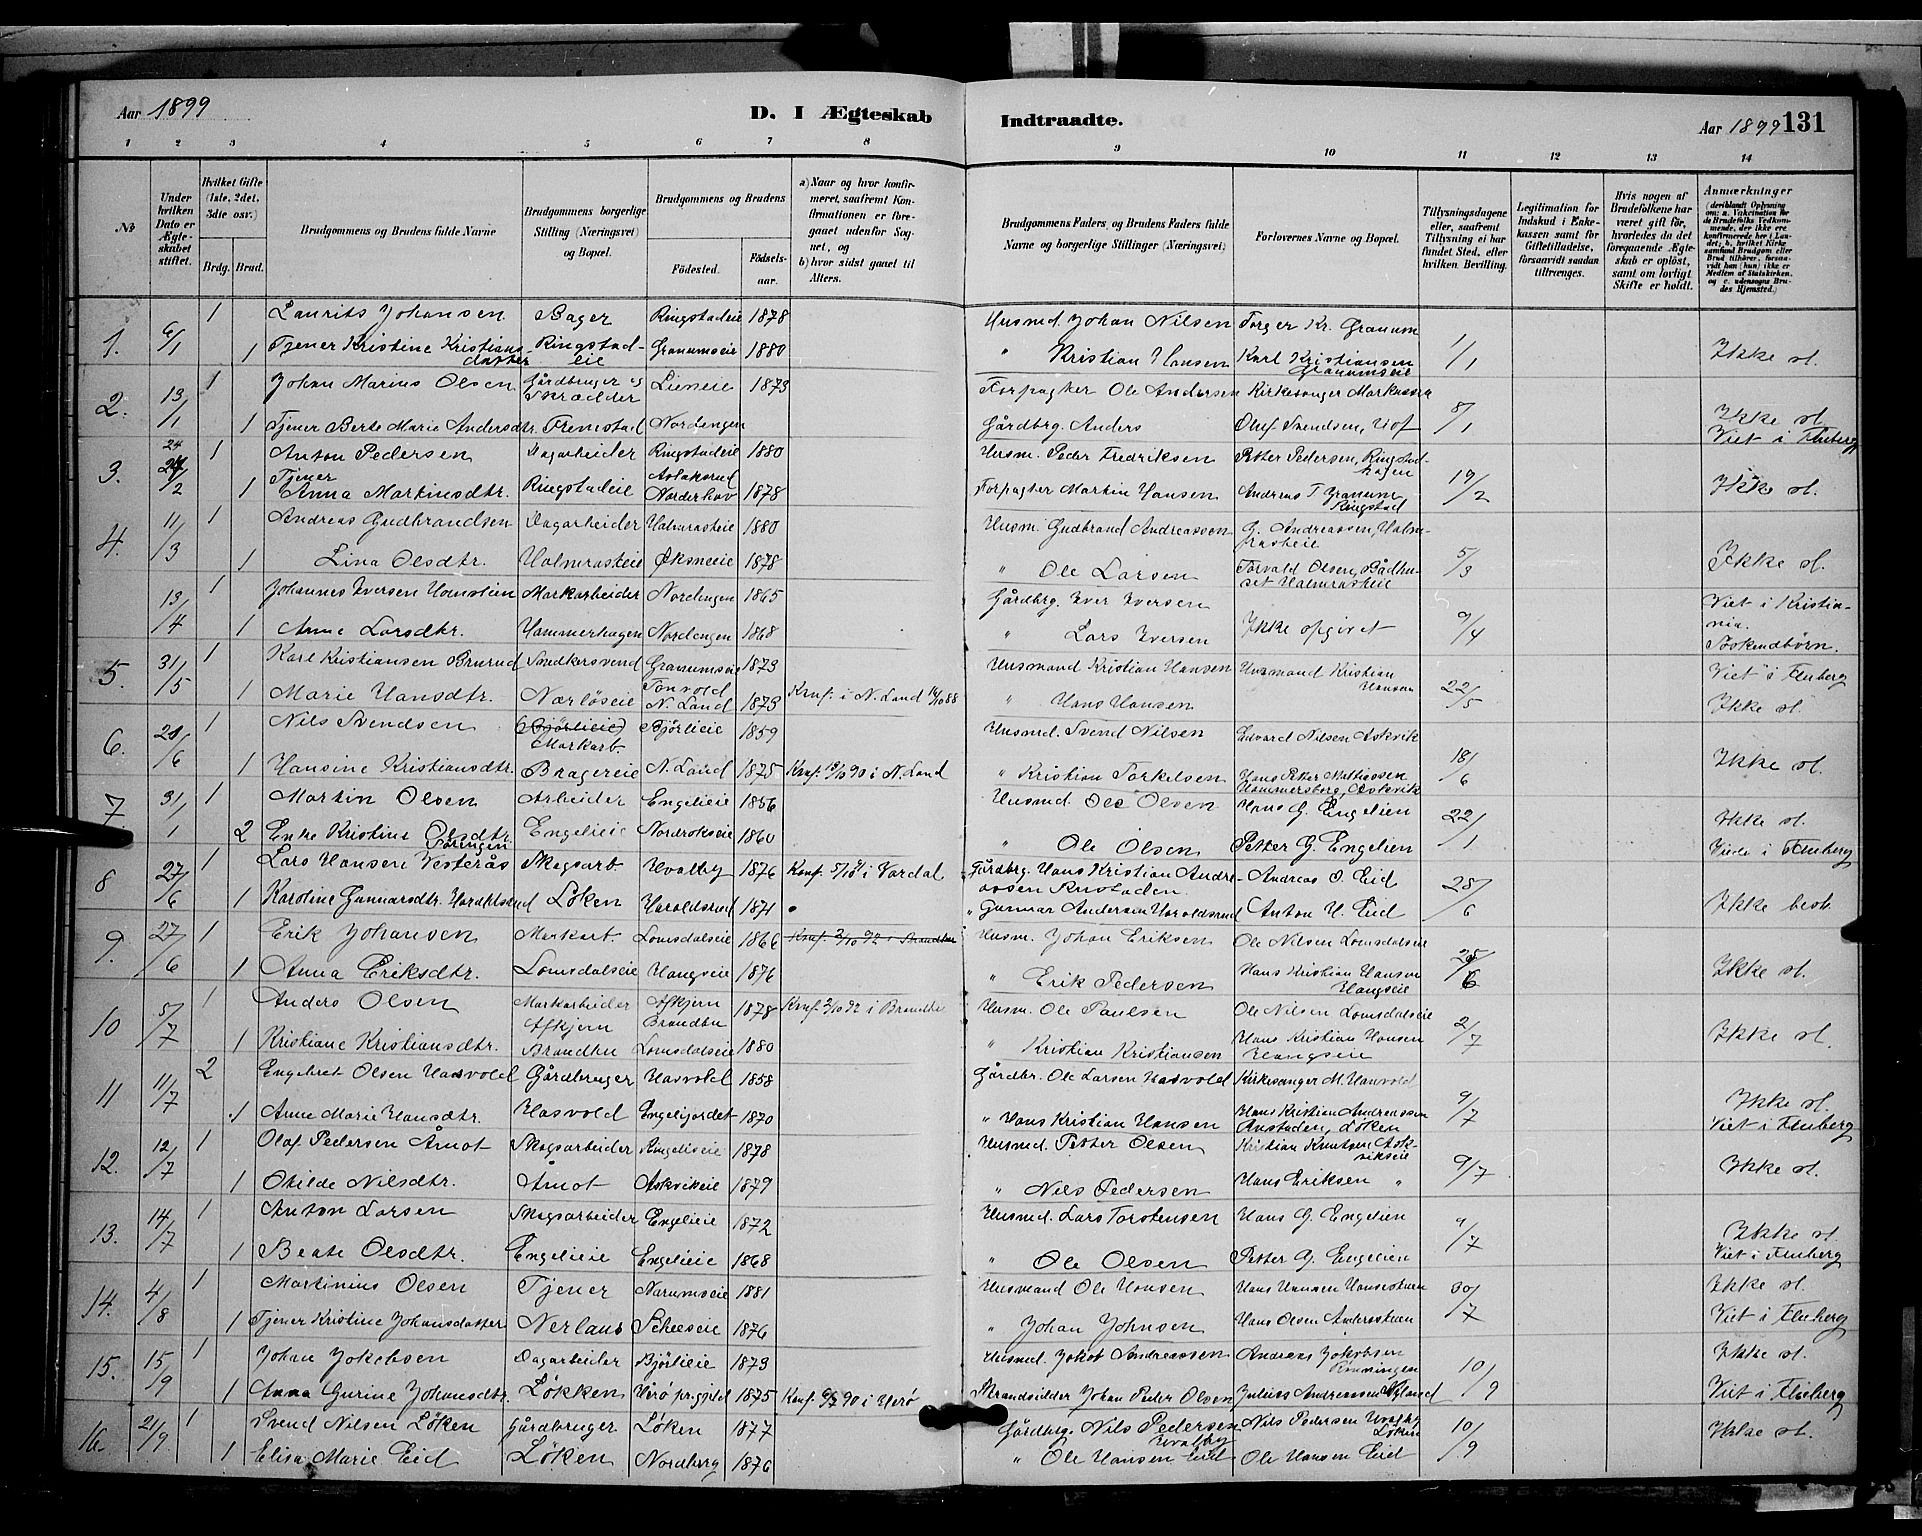 Aar 1899
D. I Ægteskab Indtraadte.
Aar 1899 131
1 2 3 4 5 6 7 8 9 10 11 12 13 14
№
Under hvilken Dato er Ægteskabet stiftet.
Hvilket Gifte (1ste, 2det, 3die osv.)
Brdg. Brud.
Brudgommens og Brudens fulde Navne
Brudgommens borgerlige Stilling (Næringsvei) og Bopæl.
Brudgommens og Brudens
Födested. Födselsaar.
a) Naar og hvor konfirmeret, saafremt Konfirmationen er foregaaet udenfor Sognet, og
b) hvor sidst gaaet til Alters.
Brudgommens Faders og Brudens Faders fulde Navne og borgerlige Stillinger (Næringsvei)
Forlovernes Navne og Bopæl.
Tillysningsdagene eller, saafremt Tillysning ei har fundet Sted, efter hvilken Bevilling.
Legitimation for Indskud i Enkekassen samt for Giftetilladelse, forsaavidt saadan tiltrænges.
Hvis nogen af Brudefolkene har været gift för, hvorledes da det foregaaende Ægteskab er oplöst, samt om lovligt Skifte er holdt.
Anmærkninger (deriblandt Oplysning om: a. Vakcination for de Brudefolks Vedkommende, der ikke ere konfirmerede her i Landet; b. hvilket Kirkesamfund Brudgom eller Brud tilhörer, forsaavidt han (hun) ikke er Medlem af Statskirken, og c. udensogns Brudes Hjemsted.)
1. 6/1 1 Laurits Johansen Bager Ringstadeie 1878 Husmd. Johan Nilsen Torger Kr. Granum 1/1
1 Tjener Kristine Kristiansdatter Ringstadeie Granumseie 1880 " Kristian Hansen Karl Kristiansen Granumseie Ikke sl.
2. 13/1 1 Johan Marius Olsen Gårdbruger og Skrædder Lieneie 1873 Forpagter Ole Andersen Kirkesanger Markussen 8/1
1 Tjener Berte Marie Andersdtr. Tremstad Nordengen Gårdbrg. Anders Oluf Svendsen, Hof Ikke sl. Viet i Fluberg
3. 24/2 1 Anton Pedersen Dagarbeider Ringstadeie 1880 Husm. Peder Fredriksen Petter Pedersen, Ringstadhagen 19/2
1 Tjener Anna Martinsdtr. Ringstadeie Norderhov 1878 Forpagter Martin Hansen Andreas T. Granum Ringstad Ikke sl.
4. 11/3 1 Andreas Gudbrandsen Dagarbeider Halmrasteie 1880 Husm. Gudbrand Andreassen G. Andreassen, Halmrasteie 5/3
1 Lina Olsdtr. Halmrasteie Öksneeie 1878 " Ole Larsen Torvald Olsen, Rådhuset Halmrasteie Ikke sl.
13/4 1 Johannes Iversen Homstien Markarbeider Nordengen 1865 Gårdbrg. Iver Iversen 9/4 Viet i Kristiania.
1 Anne Larsdtr. Hammerhagen Nordengen 1868 " Lars Iversen Ikke opgivet Söskendbörn
5. 31/5 1 Karl Kristiansen Brurud Snedkersvend Granumseie 1873 Husmand Kristian Hansen Husmand Kristian Hansen 22/5 Viet i Fluberg
1 Marie Hansdtr. Nærlöseie Tonvold N. Land 1873 Konf. i N. Land 14/10 88 " Hans Hansen Ikke sl.
6. 21/6 1 Nils Svendsen (Bjórlieie) Markarb. Bjórlieie 1859 Husmd. Svend Nilsen Edvard Nilsen Askvik 18/6
1 Hansine Kristiansdtr. Bragereie N. Land 1875 Konf. 12/10 90 i N. Land " Kristian Torkelsen Hans Petter Mathiassen Hammersberg, Askvik Ikke sl.
7 31/1 1 Martin Olsen Arbeider Engelieie 1856 Husmd. Ole Olsen Hans G. Engelien 22/1 Ikke sl.
2 Enke Kristine Olsdtr. Engelieie Nordrokseie 1860 " Ole Olsen Petter G. Engelien Viet i Fluberg
8 27/6 1 Lars Hansen Vesterås Skogsarb. Hvalby 1876 Konf. 5/10 91 i Vardal Gårdbrg. Hans Kristian Andreassen Andreas O. Eid 25/6
1 Karoline Gunnarsdtr. Haroldsrud Löken Haroldsrud 1871 " Gunnar Andersen Haroldsrud Anton H. Eid Ikke besl.
9. 27/6 1 Erik Johansen Markarb. Lomsdalseie 1866 Konf. 2/10 92 i Brandbu Husm. Johan Eriksen Ole Nilsen Lomsdalseie 25/6
1 Anna Eriksdtr. Lomsdalseie Haugseie 1876 " Erik Pedersen Hans Kristian Hansen Haugseie Ikke sl.
10 5/7 1 Anders Olsen Markarbeider Afkjern Brandbu 1878 Konf. 2/10 92 i Brandbu Husm. Ole Paulsen Ole Nilsen Lomsdalseie 2/7
1 Kristiane Kristiansdtr. Afkjern Brandbu Lomsdalseie 1880 " Kristian Kristiansen Hans Kristian Hansen Haugseie Ikke sl.
11 11/7 2 Engebret Olsen Hasvold Gårdbruger Hasvold 1858 Gårdbr. Ole Larsen Hasvold Kirkesanger M. Hanvold 9/7
1 Anne Marie Hansdtr. Hasvold Engelijordet 1870 " Hans Kristian Hansen Hans Kristian Andreassen Anstaden, Löken Ikke sl. Viet i Fluberg
12. 12/7 1 Olaf Pedersen Åmot Skogsarbeider Ringelieeie 1878 Husmd. Petter Olsen Kristian Knutsen Askvikeie 9/7
1 Otilde Nilsdtr. Åmot Askvikeie 1879 " Nils Pedersen Hans Eriksen " Ikke sl.
13. 14/7 1 Anton Larsen Skogsarbeider Engelieie 1872 Husmd. Lars Torstensen Hans G. Engelien 9/7
1 Beate Olsdtr. Engelieie Engelieie 1868 " Ole Olsen Petter G. Engelien Ikke sl. Viet i Fluberg
14. 4/8 1 Martinius Olsen Tjener Narumseie 1881 Husmand Ole Hansen 30/7 Ikke sl.
1 Tjener Kristine Johansdatter Nerlaus Scheeseie 1876 " Johan Johnsen Hans Olsen Viet i Fluberg
15. 15/9 1 Johan Jokobsen Dagarbeider Bjórlieie 1873 Husmd. Jokob Andreassen Andreas Jokobsen Rönningen 10/9 Ikke sl.
1 Anna Gurine Johansdtr. Lökken Herö prgjeld 1875 Konf. 6/7 90 i Herö Strandsidder Johan Peder Olsen Julius Andreassen Nyland Viet i Fluberg
16. 21/9 1 Svend Nilsen Löken Gårdbruger Löken 1877 Gårdbrg. Nils Pedersen Hvalby Nils Pedersen Hvalby Löken 10/9
1 Elisa Marie Eid Löken Nordberg 1876 " Ole Hansen Eid Ole Hansen Eid Ikke sl.